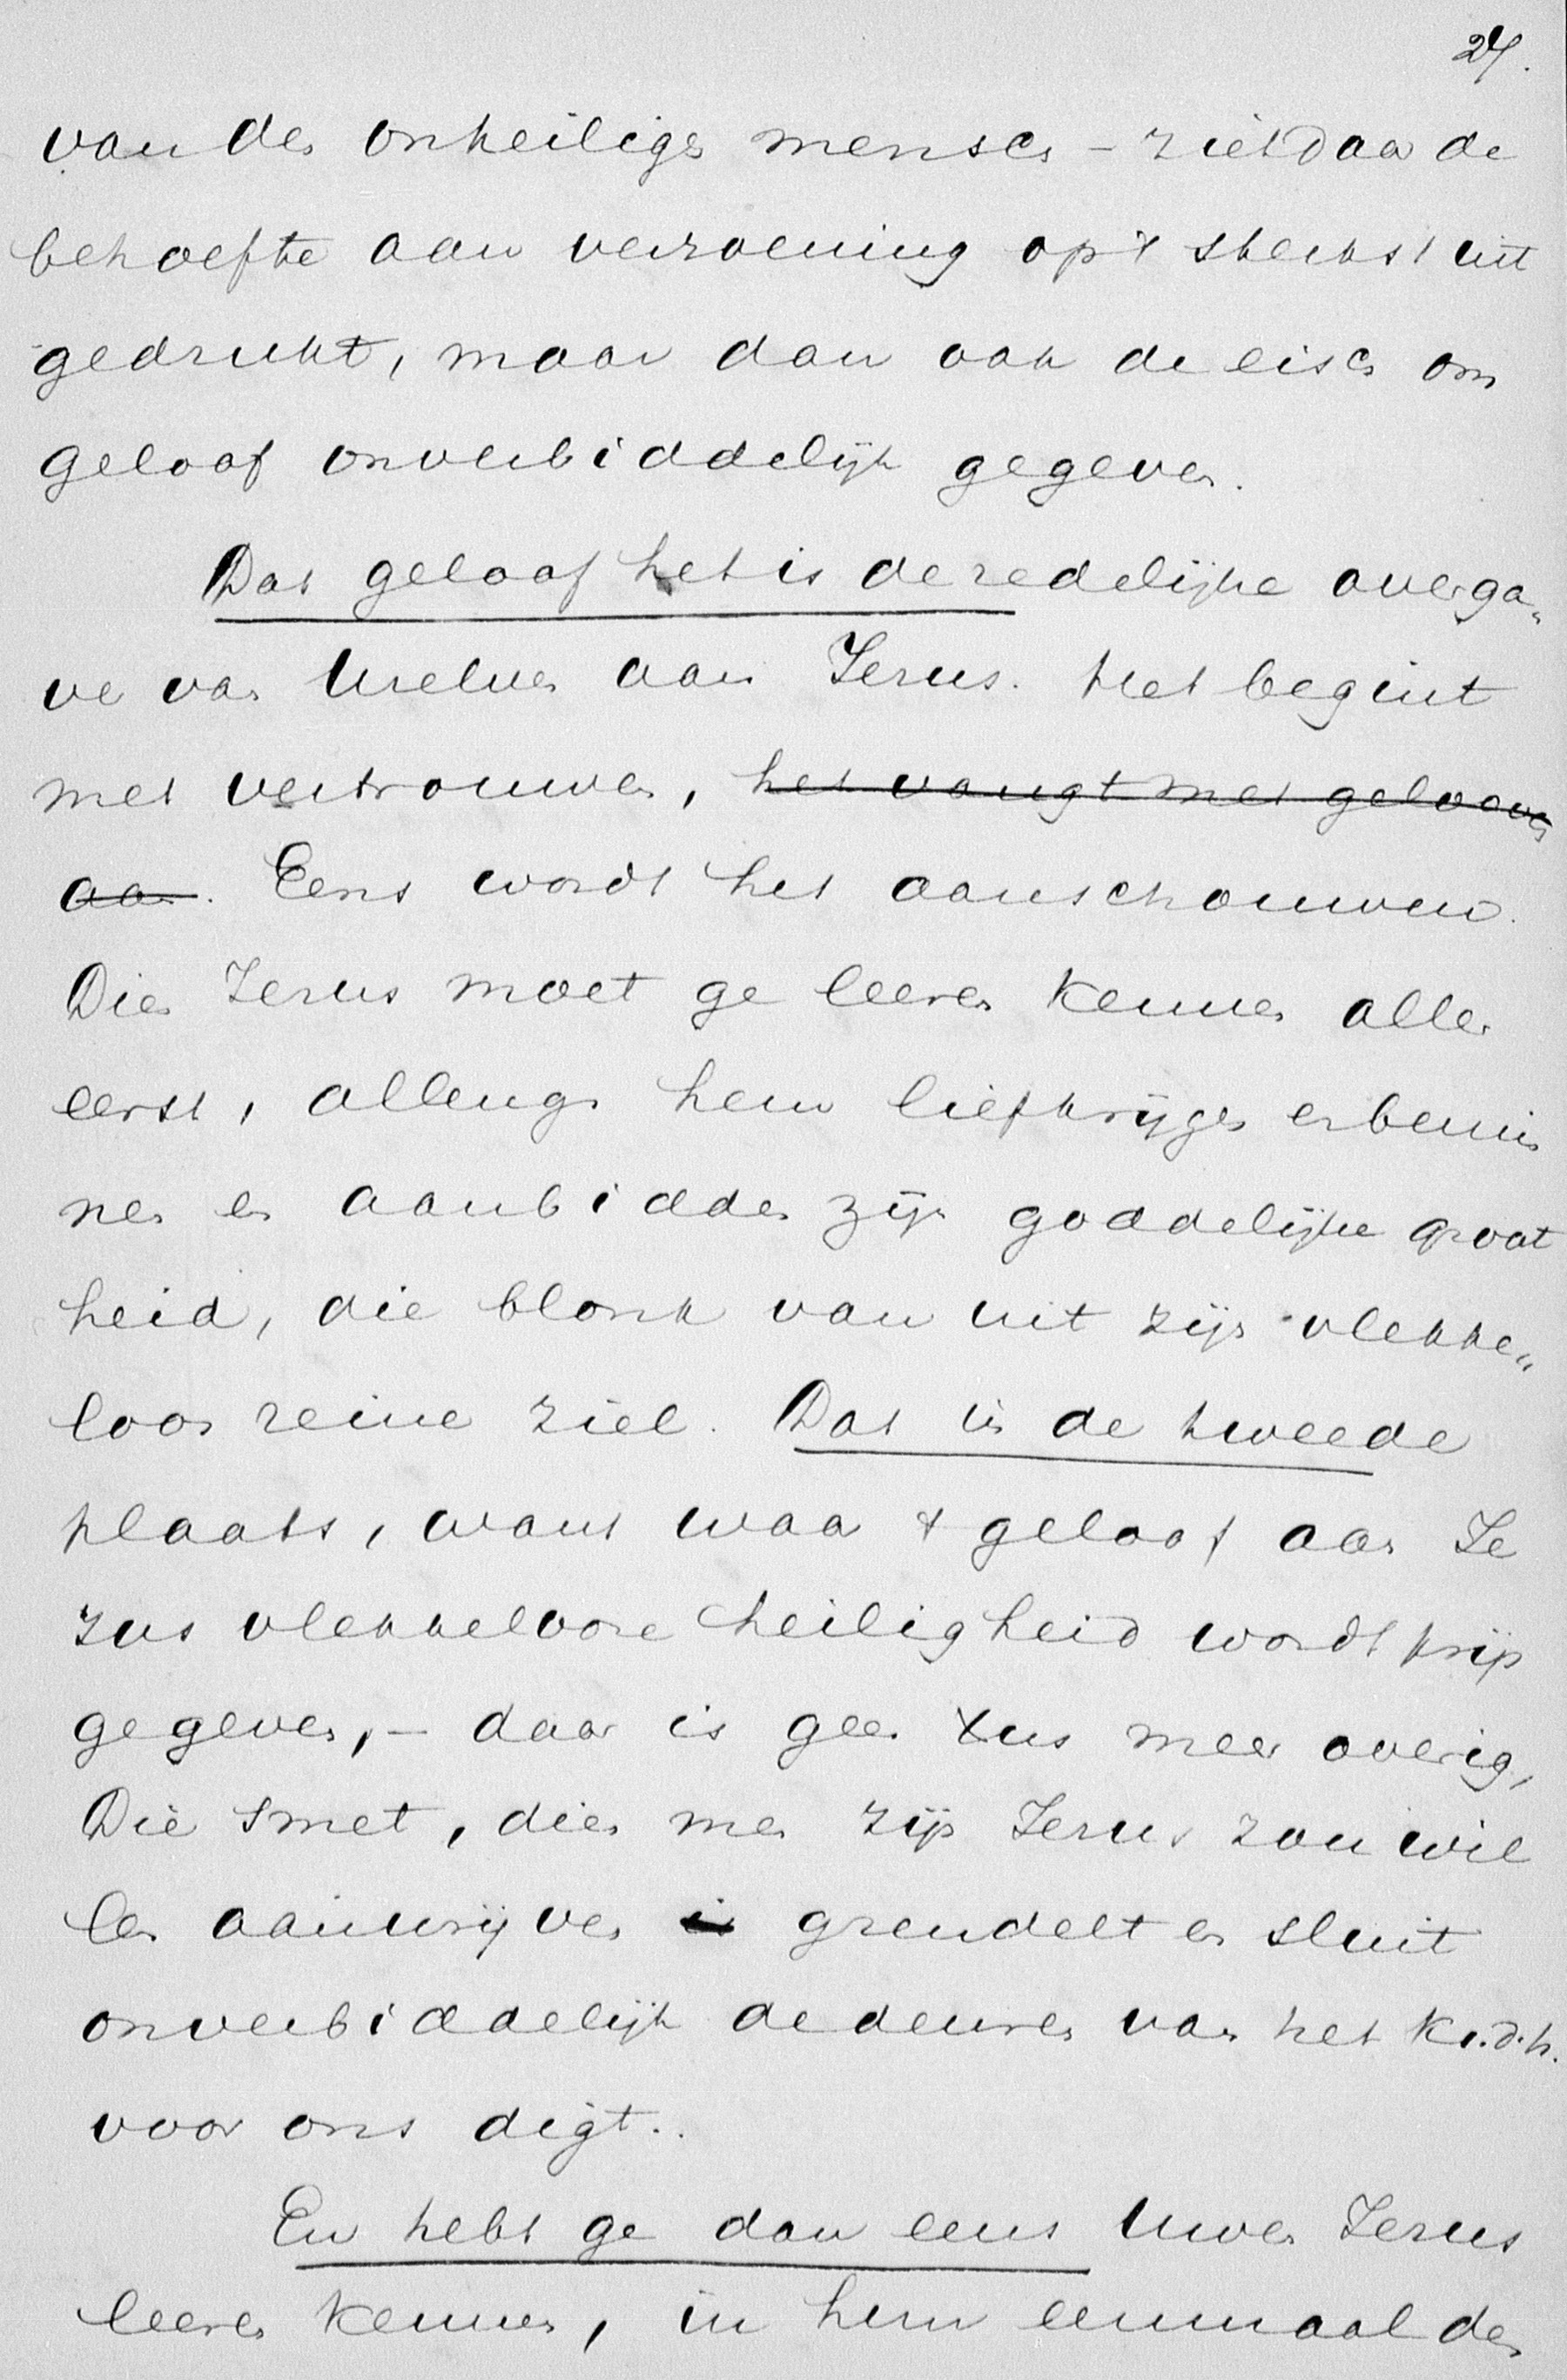 27.
van den onheiligen mensch – ziet daar de
behoefte aan verzoening op 't sterkst uit
gedrukt, maar dan ook de eisch om
geloof onverbiddelijk gegeven.
Dat geloof het is de redelijke overga„
ve van Uzelven aan Jezus. Het begint
met vertrouwen, het vangt met gelooven
aan. Eens wordt het aanschouwen.
Dien Jezus moet ge leeren kennen aller
eerst, allengs hem liefkrijgen en bemin
nen en aanbidden zijn goddelijke groot
heid, die blonk van uit zijn vlekke„
loos reine ziel. Dat in de tweede
plaats, want waar 't geloof aan Je
zus vlekkelooze heiligheid wordt prijs
gegeven, – daar is geen Xus meer overig,
Die smet, dien men zijn Jezus zou wil
len aanwrijven is grendelt en sluit
onverbiddelijk de deuren van het Kr.d.h.
voor ons digt..
En hebt ge dan eens Uwen Jezus
leeren kennen, in hem eenmaal den